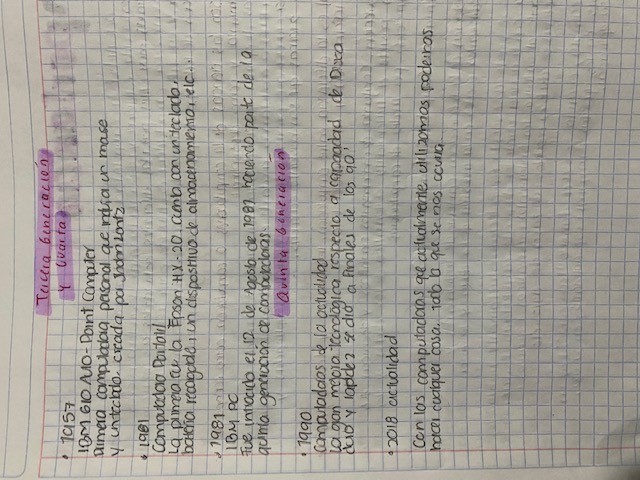 Tercera Generación
y Cuarta
• 1957
IBM 610 Auto-Point Computer
Primera computadora personal que incluia un mouse
y un teclado, creada por John Lentz
• 1981
Computadora Portatil
La primera fue la Epson HX-20. cuenta con un teclado,
bateria recargable, un dispositivo de almacenamiento, etc..
• 1981
IBM PC
Fue introcido el 12 de Agosto de 1981 haciendo parte de la
quinta generación de computadoras.
Quinta Generación
• 1990
Computadoras de la actualidad
La gran mejora tecnologica respecto a capacidad de Disco
duro y rapidez se dio a finales de los 90'
• 2018 actualidad
Con las computadoras que actualmente utilizamos podemos
hacer cualquier cosa, todo lo que se nos ocurra.